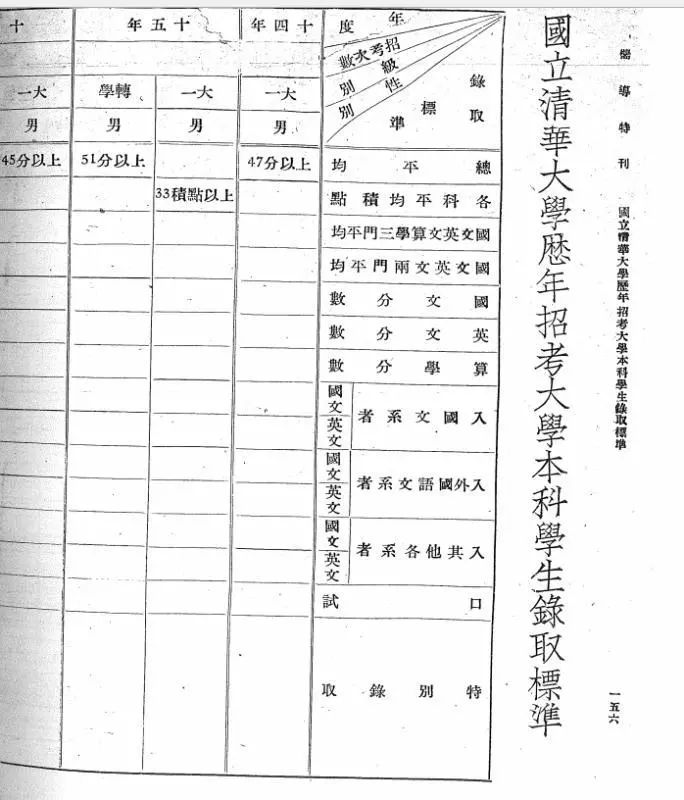 嚮導特刊 國立清華大學歷年招考大學本科學生錄取標準
一五六
國立清華大學歷年招考大學本科學生錄取標準
年度
招考次數
級別
性別
錄取標準
總平均
各科平均積點
國文英文算學三門平均
國文英文兩門平均
國文分數
英文分數
算學分數
入國文系者
國文
英文
入外國語文系者
國文
英文
入其他各系者
國文
英文
口試
特別錄取
十四年
大一
男
47分以上
十五年
大一
男
33積點以上
轉學
男
51分以上
十
大一
男
45分以上